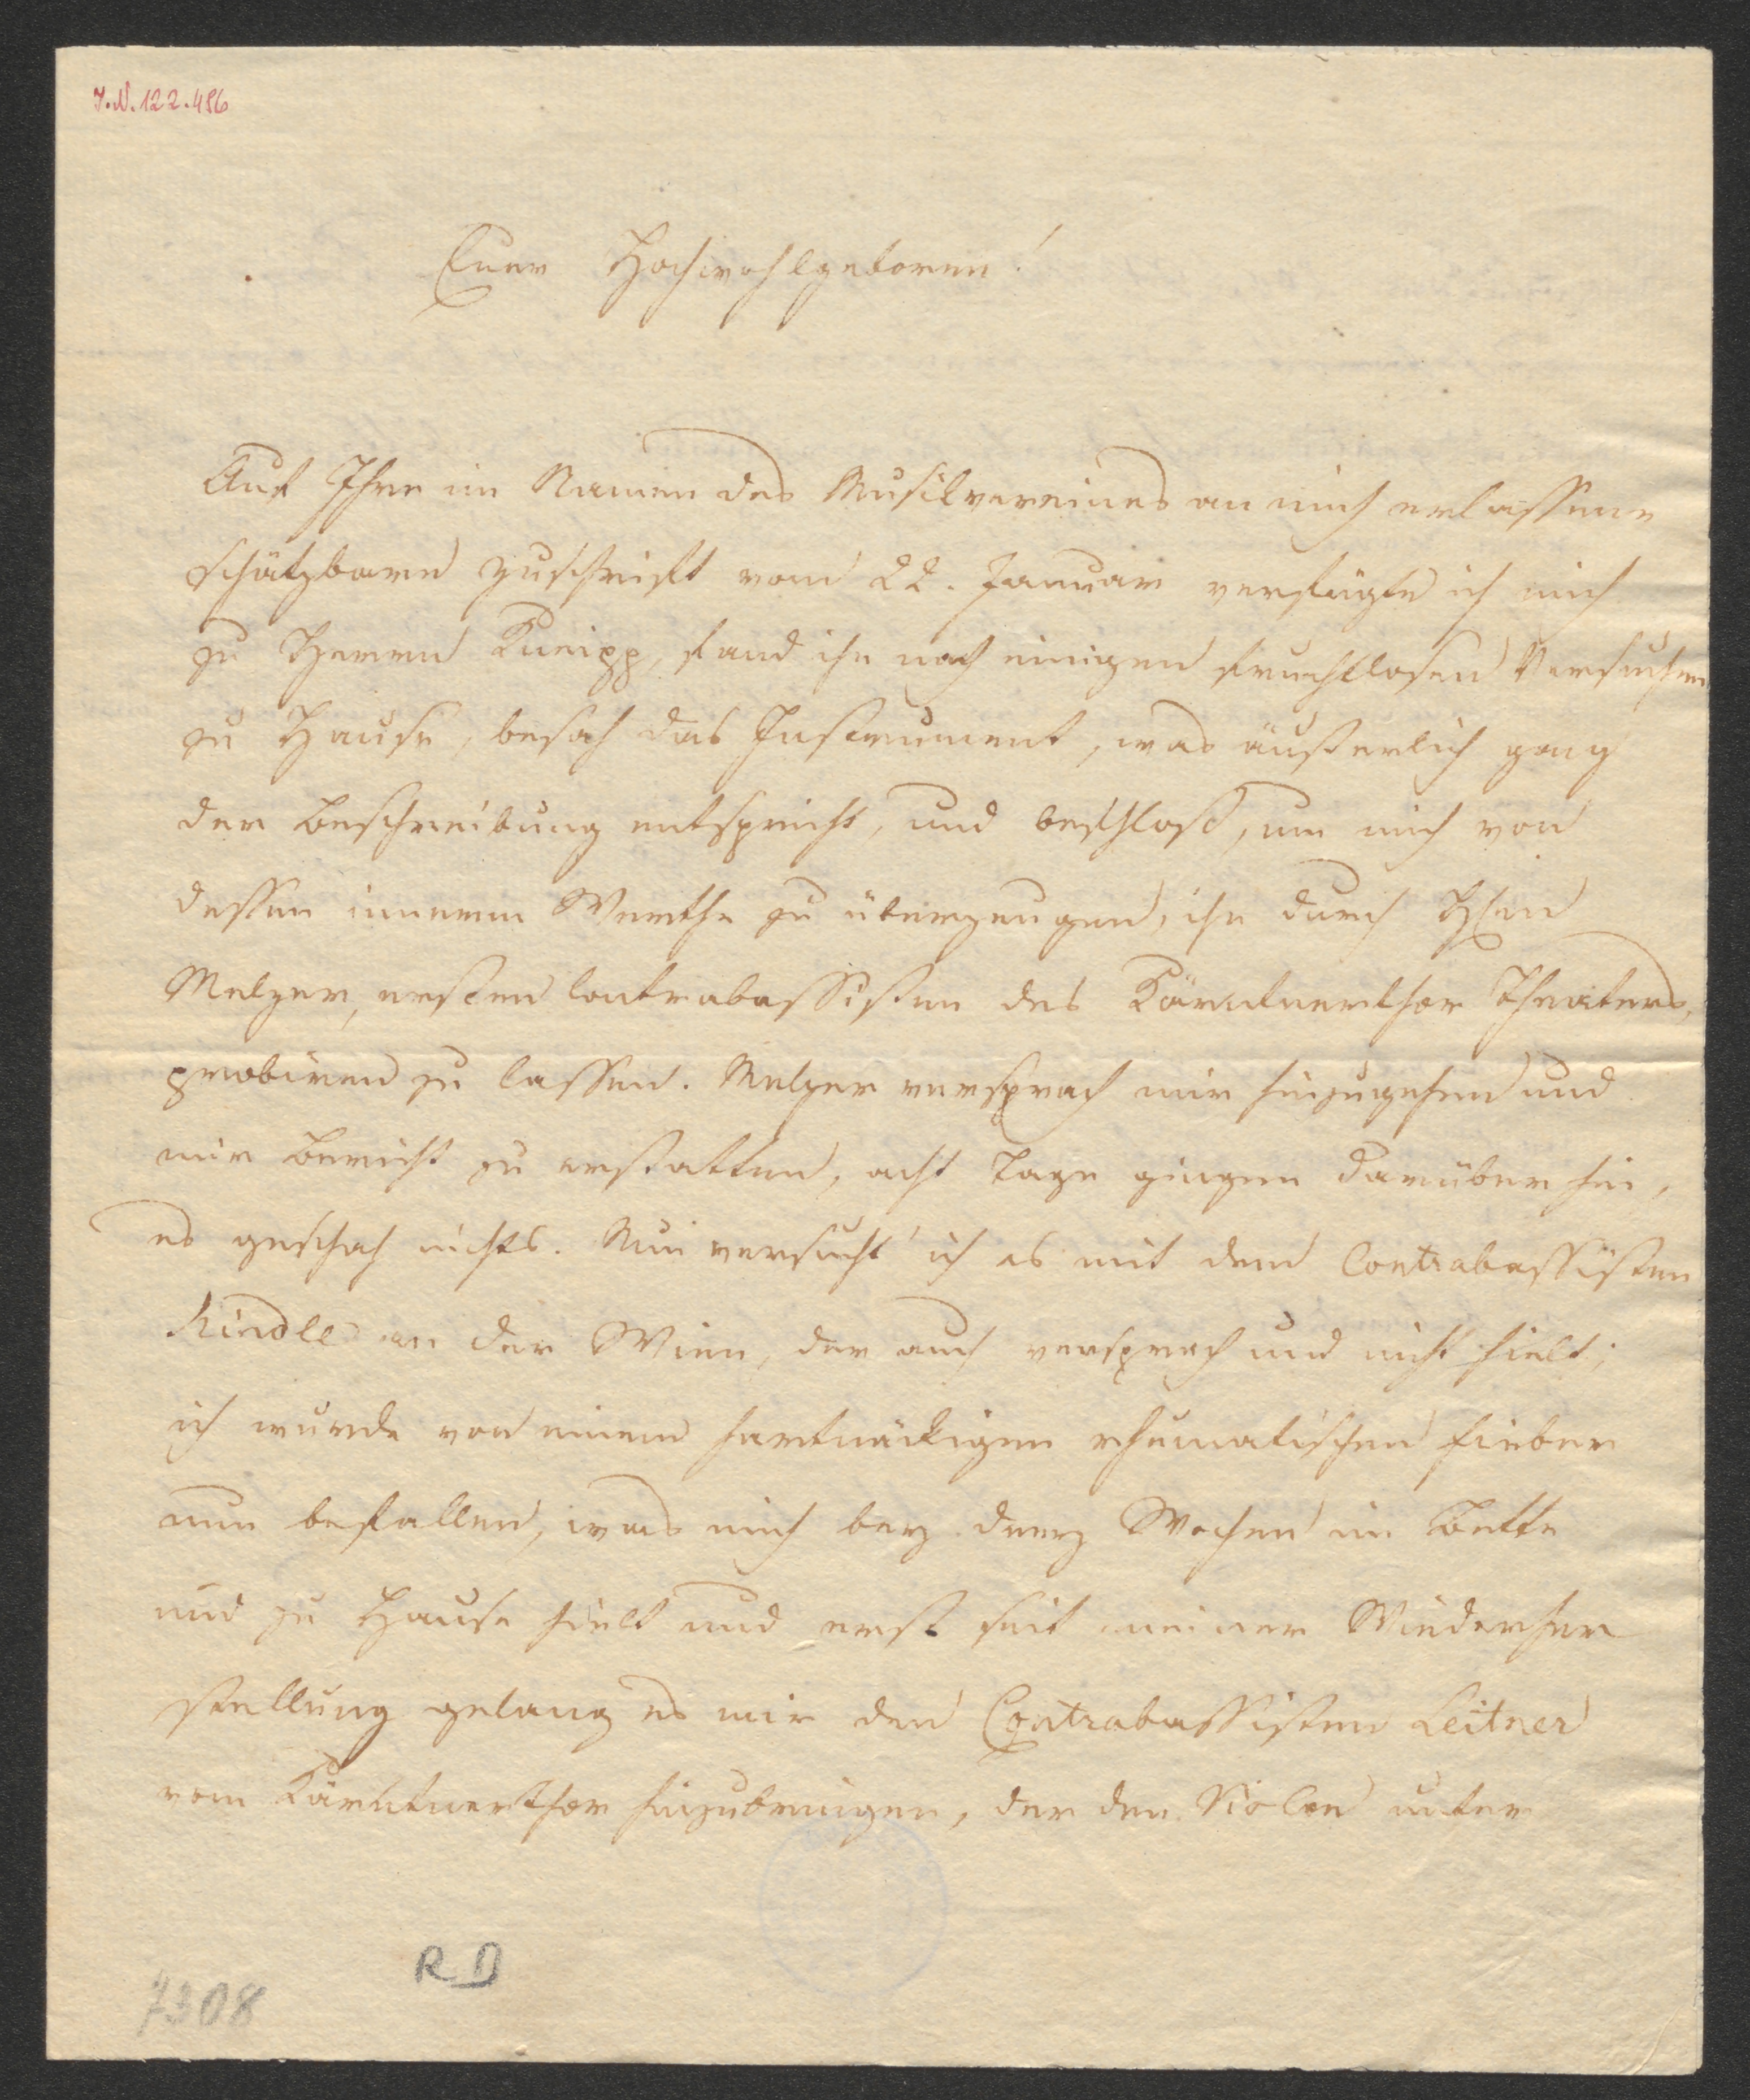 I.N. 122.486
Euer Hochwohlgeboren!
Auf Ihre im Namen des Musikvereines an mich erlassene
schätzbare Zuschrift vom 22. Januar verfügte ich mich
zu Herrn Kneipp, fand ihn nach einigen fruchtlosen Versuchen
zu Hause, besah das Instrument, was äußerlich ganz
der Beschreibung entspricht, und beschloß, um mich von
dessen innerem Werthe zu überzeugen, ihn durch Hrn
Melzer, ersten Contrabassisten des Kärntnerthor Theaters,
probiren zu lassen. Melzer versprach mir hinzugehen und
mir Bericht zu erstatten, acht Tage gingen darüber hin,
es geschah nichts. Nun versucht' ich es mit dem Contrabassisten
Hindle an der Wien, der auch versprach und nicht hielt;
ich wurde von einem hartnäckigen rhumatischen Fieber
nun befallen, was mich bey drey Wochen im Bette
und zu Hause hielt und erst seit meiner Wiederher
stellung gelang es mir den Contrabassisten Leitner
vom Kärntnerthor hinzubringen, der den Violon unter
R D
7308